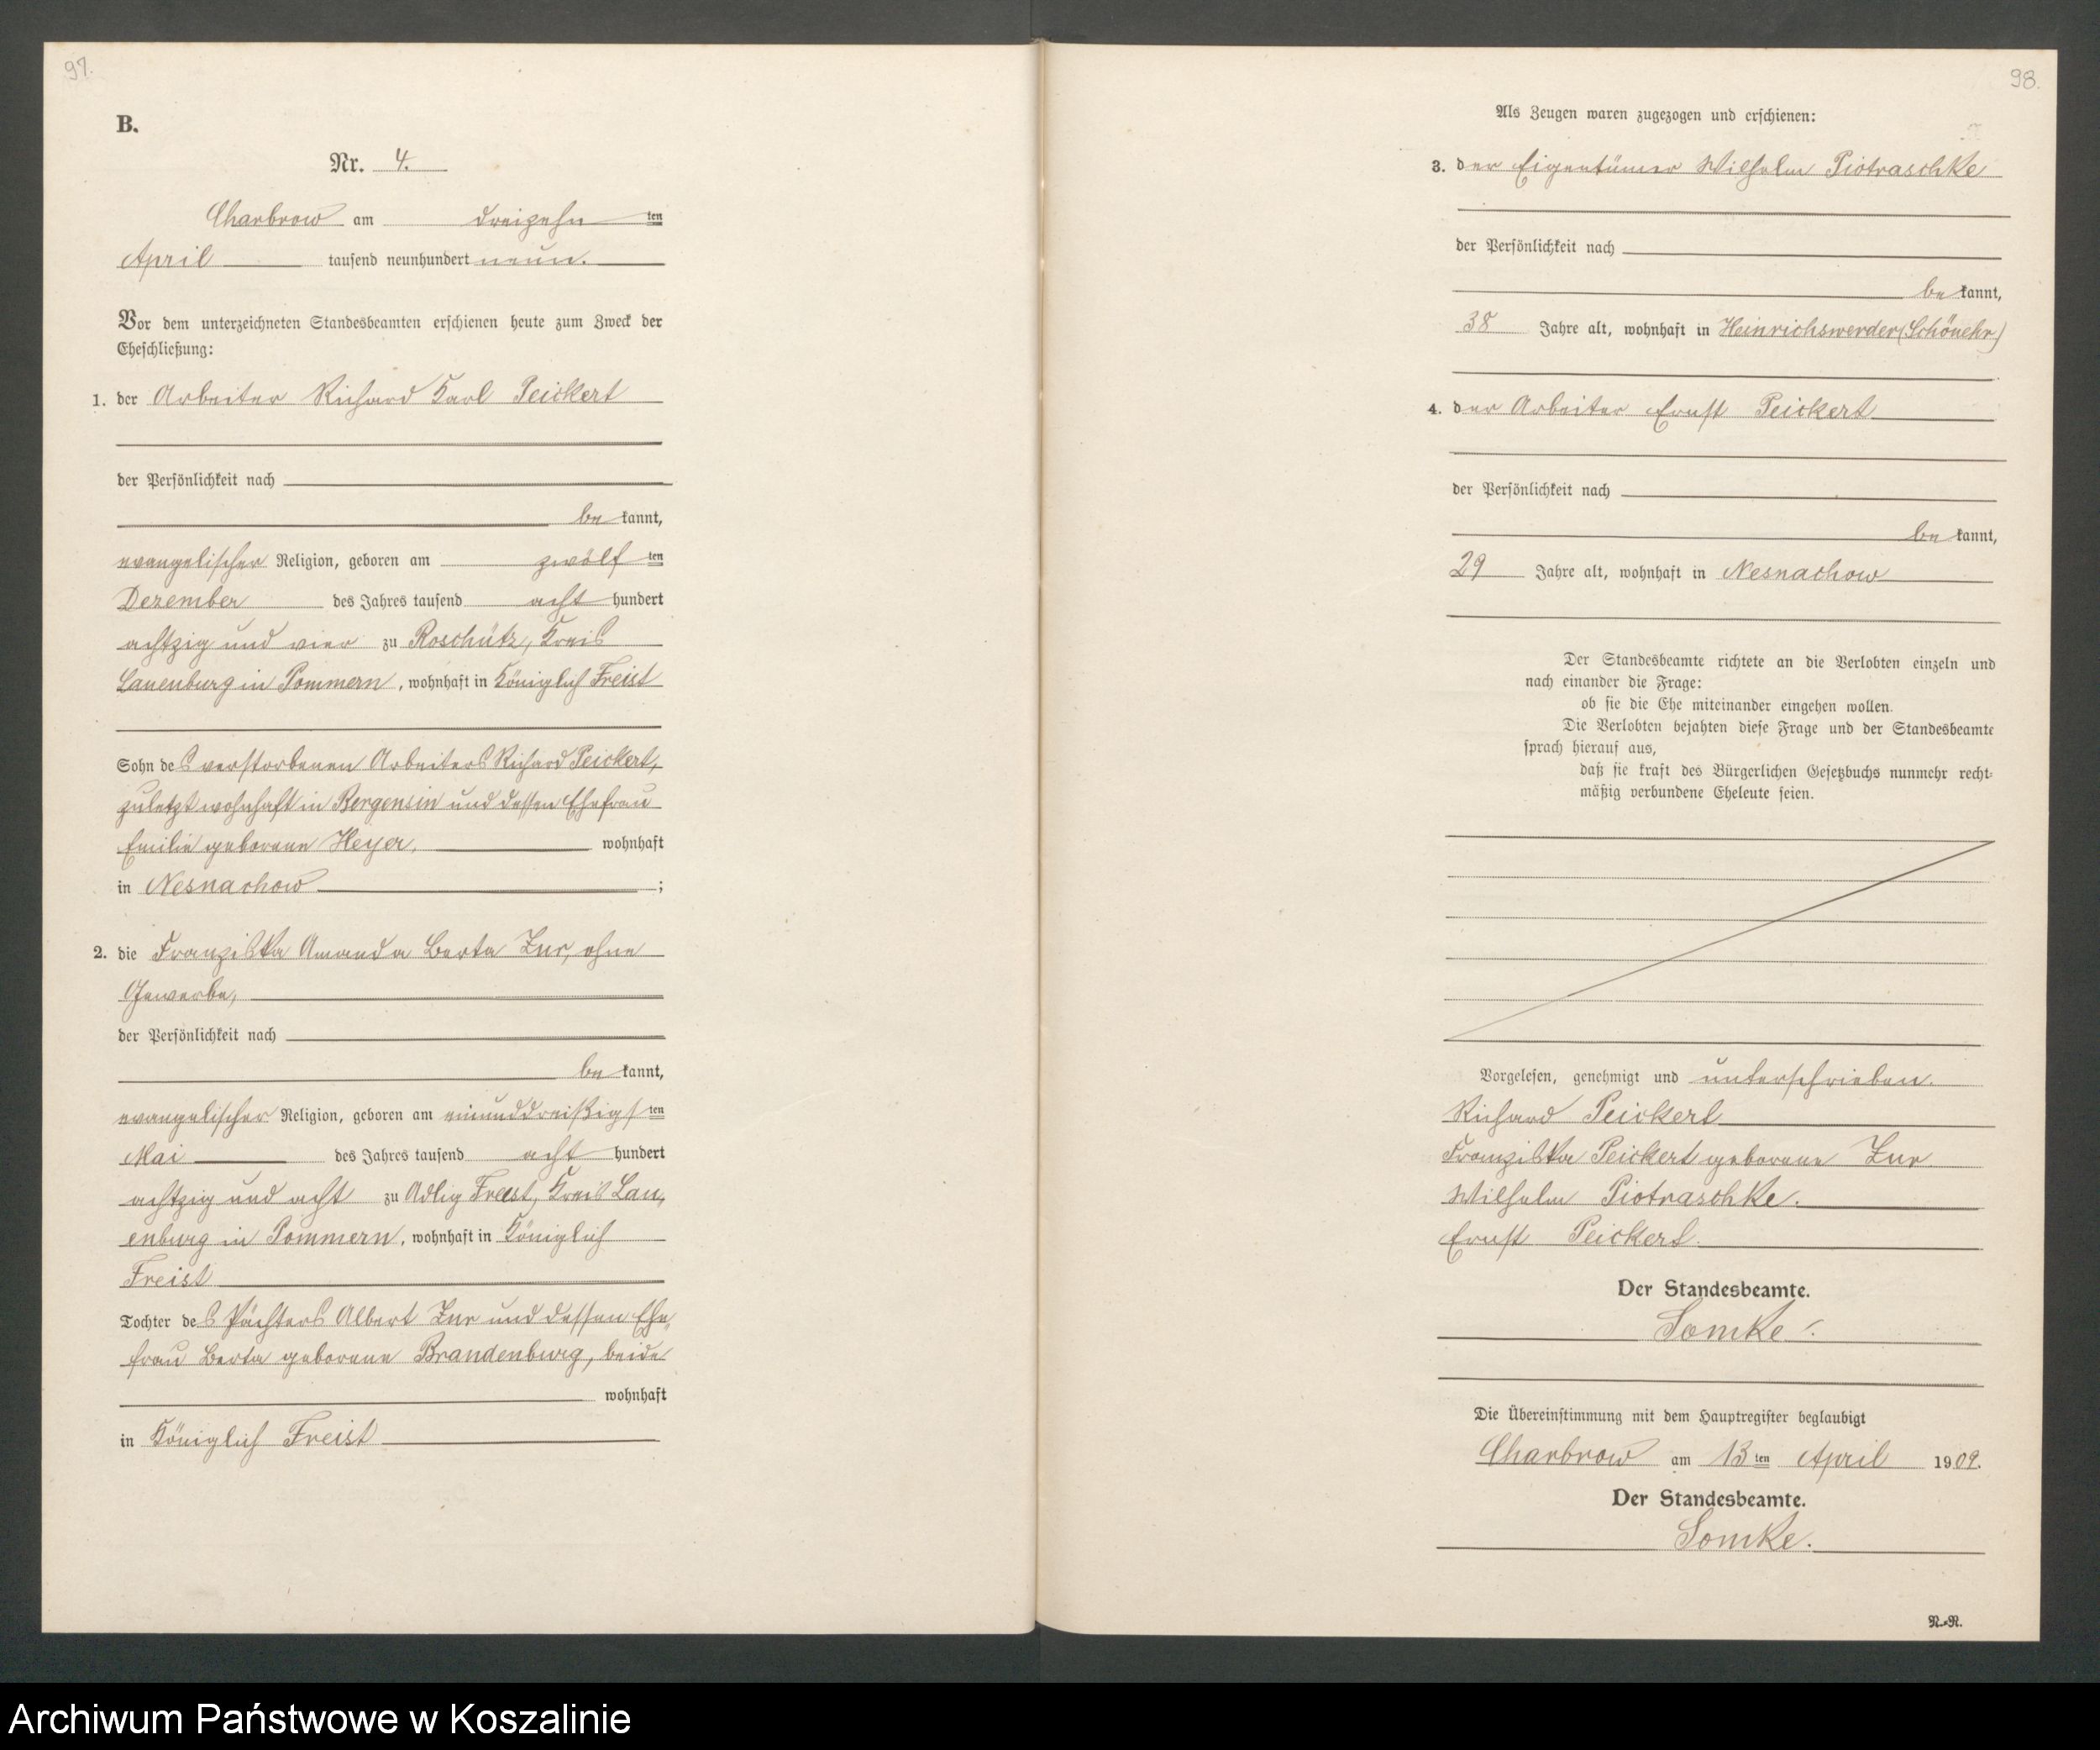 97.
B.
Nr. 4.
Charbrow am dreizehn ten
April tausend neunhundert neun.
Vor dem unterzeichneten Standesbeamten erschienen heute zum Zweck der
Eheschließung:
1. der Arbeiter Richard Karl Peickert
der Persönlichkeit nach
be kannt,
evangelischer Religion, geboren am zwölf ten
Dezember des Jahres tausend acht hundert
achtzig und vier zu Roschütz, Kreis
Lauenburg in Pommern, wohnhaft in Königlich Freist
Sohn des verstorbenen Arbeiters Richard Peickert,
zuletzt wohnhaft in Bergensin und dessen Ehefrau
Emilie geborene Heyer, wohnhaft
in Nesnachow ;
2. die Franziska Amanda Berta Zur, ohne
Gewerbe,
der Persönlichkeit nach
be kannt,
evangelischer Religion, geboren am einunddreißigs ten
Mai des Jahres tausend acht hundert
achtzig und acht zu Adlig Freest, Kreis Lau,
enburg in Pommern, wohnhaft in Königlich
Freist
Tochter des Pächters Albert Zur und dessen Ehe,
frau Berta geborene Brandenburg, beide
wohnhaft
in Königlich Freist
98.
Als Zeugen waren zugezogen und erschienen:
3. der Eigentümer Wilhelm Piotraschke
der Persönlichkeit nach
be kannt,
38 Jahre alt, wohnhaft in Heinrichswerder (Schönehr)
4. der Arbeiter Ernst Peickert
der Persönlichkeit nach
be kannt,
29 Jahre alt, wohnhaft in Nesnachow
Der Standesbeamte richtete an die Verlobten einzeln und
nach einander die Frage:
ob sie die Ehe miteinander eingehen wollen.
Die Verlobten bejahten diese Frage und der Standesbeamte
sprach hierauf aus,
daß sie kraft des Bürgerlichen Gesetzbuchs nunmehr recht-
mäßig verbundene Eheleute seien.
Vorgelesen, genehmigt und unterschrieben.
Richard Peickert
Franziska Peickert geborene Zur
Wilhelm Piotraschke.
Ernst Peickert.
Der Standesbeamte.
Somke.
Die Übereinstimmung mit dem Hauptregister beglaubigt
Charbrow am 13 ten April 1909.
Der Standesbeamte.
Somke.
N.-N.
Archiwum Państwowe w Koszalinie